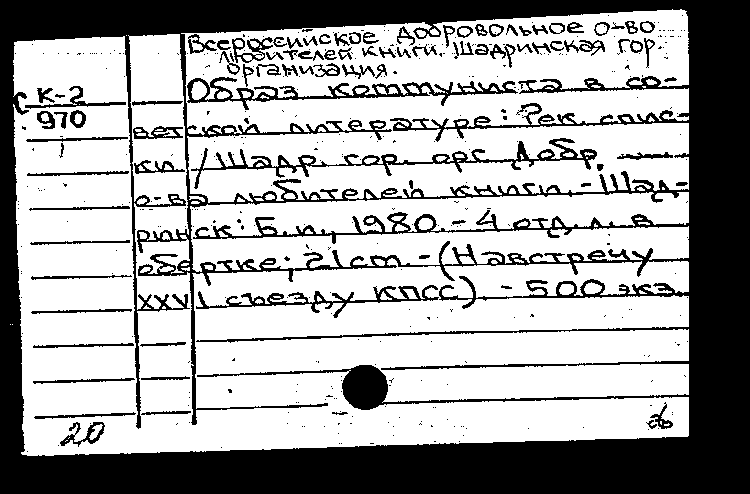 Всероссийское добровольное о-во
любителей книги. Шадринская гор.
организация.
С К-2
970
Образ коммуниста в со-
ветской литературе: Рек. спис-
ки / Шадр. гор. орг. Добр.
о-ва любителей книги. - Шад-
ринск: Б.и., 1980. - 4 отд. л. в
обертке; 21 cm. - (Навстречу
XXVI съезду КПСС). - 500 экз.
20